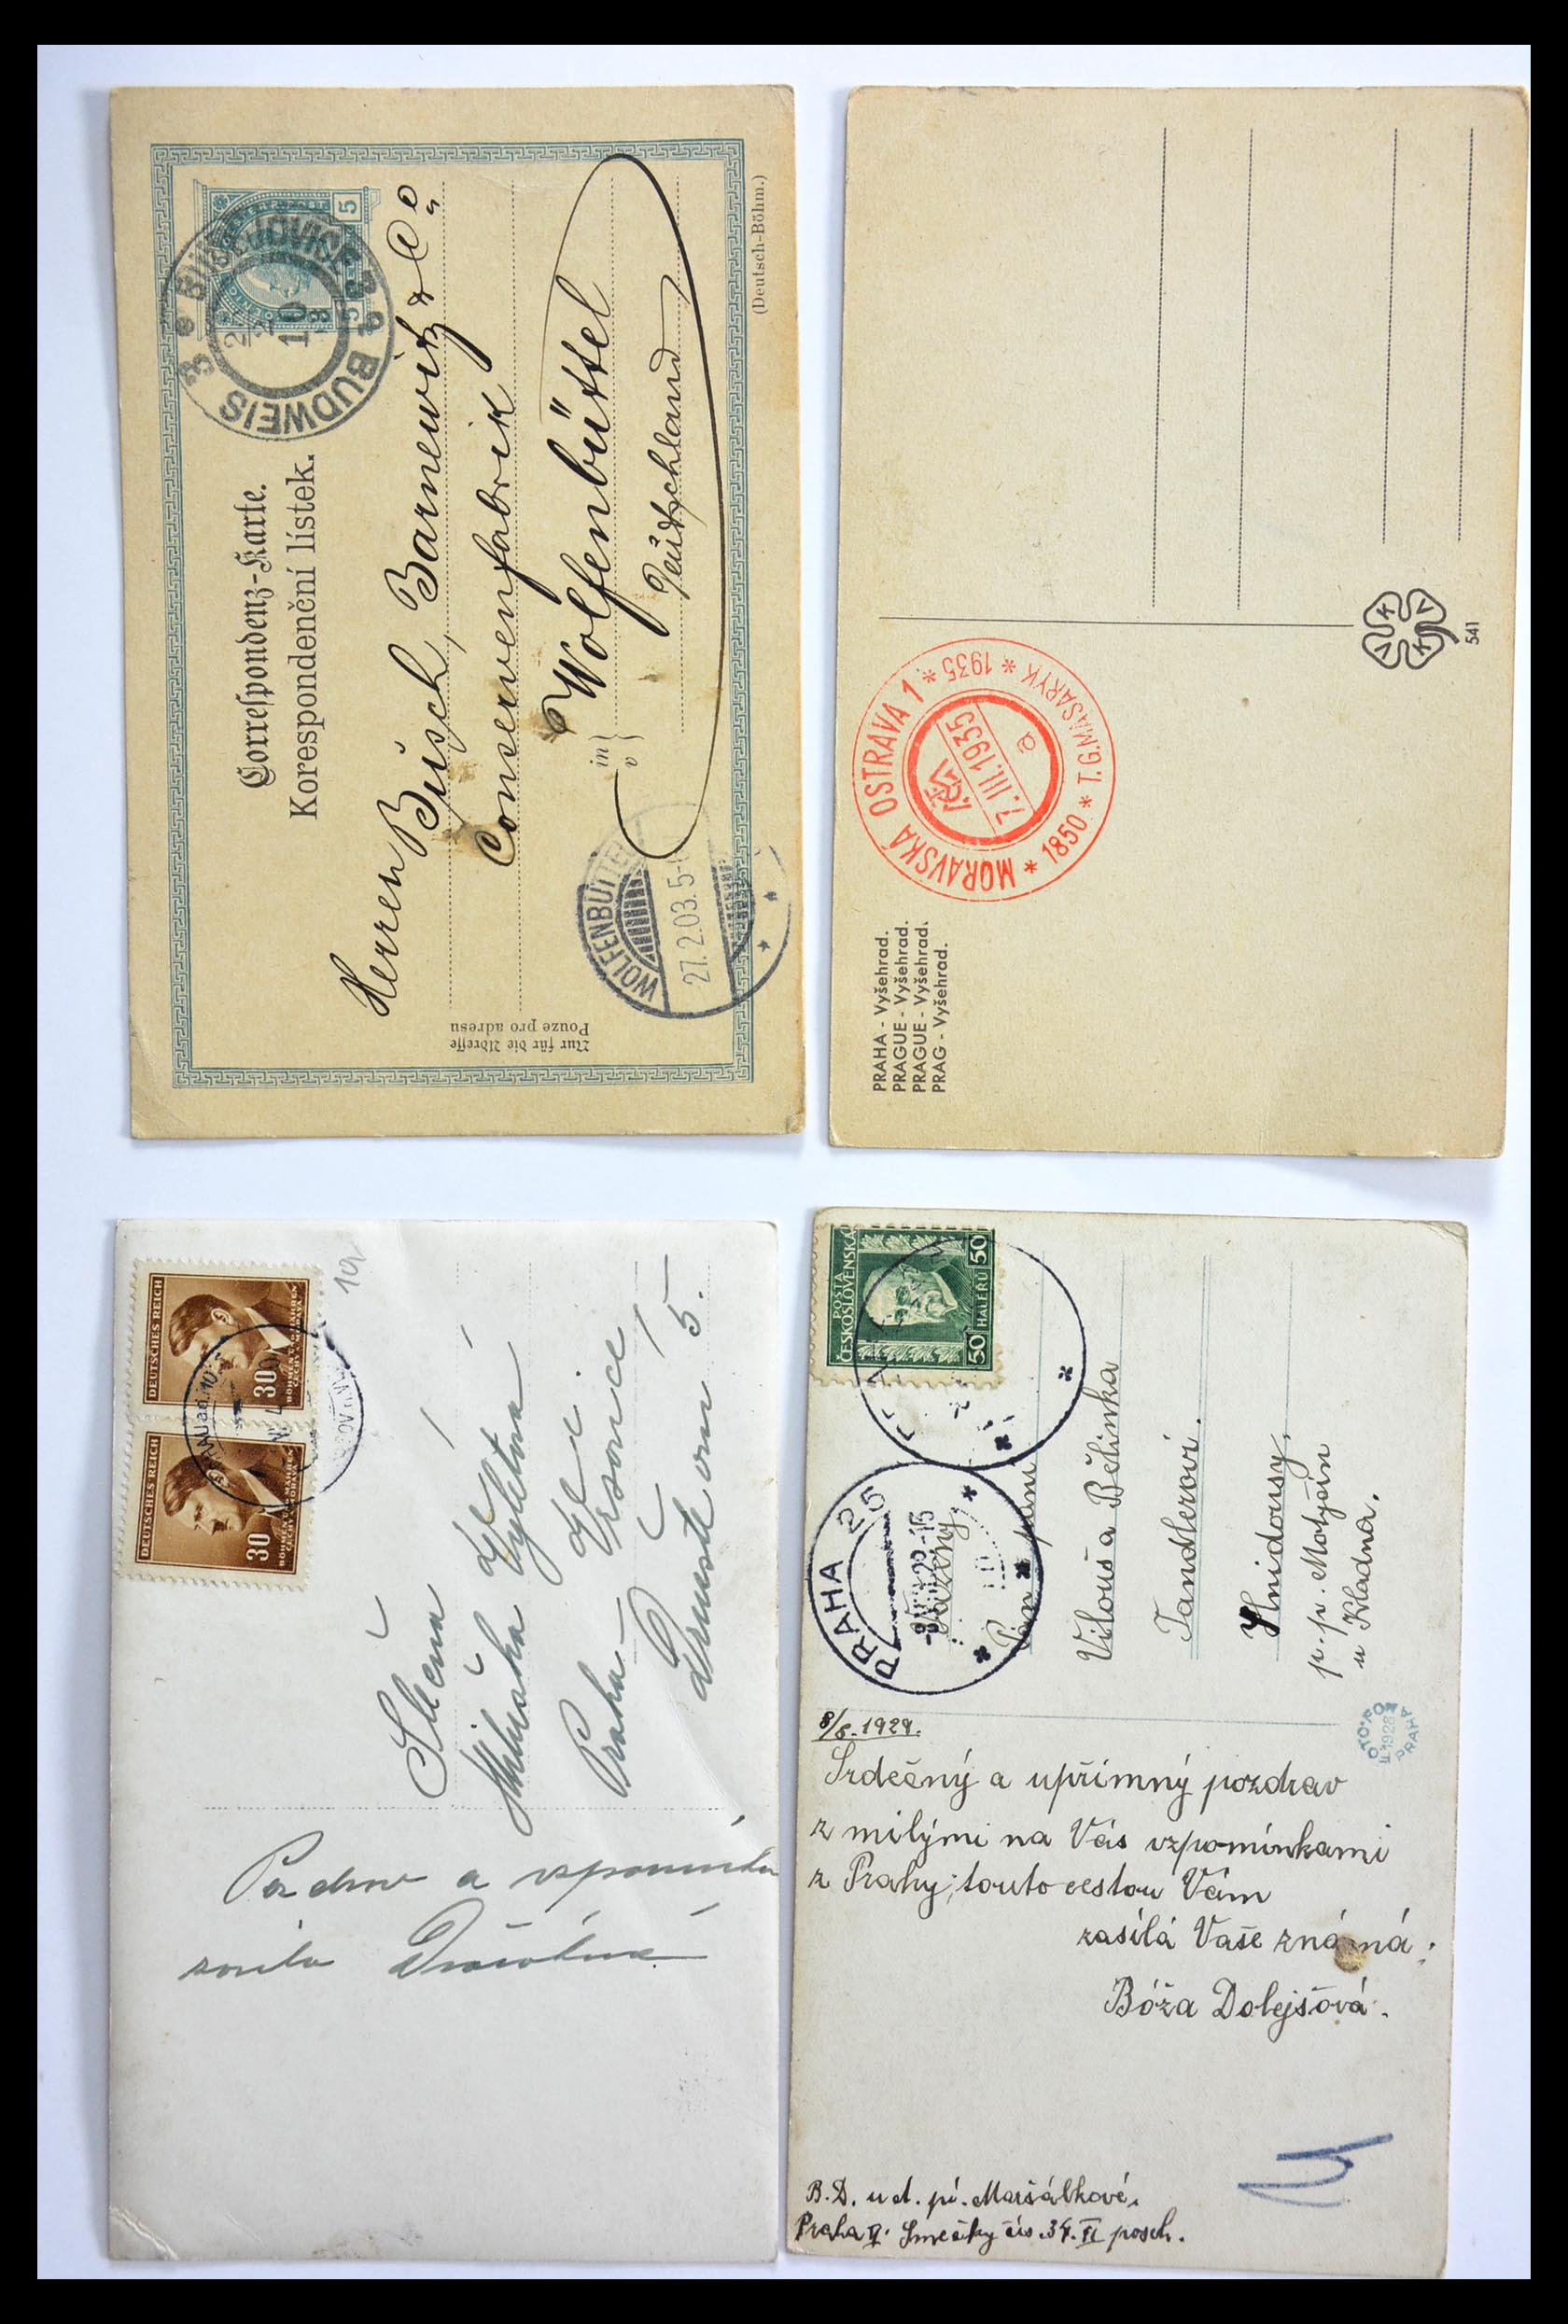 Correspondenz-Karte.
Korespondenční lístek.
BUDWEIS 3
BUDĚJOVICE 3
5 5
Herren Busch, Barnewitz & Co
Conservenfabrik
in
v
Wolfenbüttel
Deutschland
Nur für die Adresse
Pouze pro adresu
WOLFENBÜTTEL
27.2.03.5-6
(Deutsch-Böhm.)
PRAHA - Vyšehrad.
PRAGUE - Vyšehrad.
PRAGUE - Vyšehrad.
PRAG - Vyšehrad.
MORAVSKÁ OSTRAVA 1
* 1850 * T.G.MASARYK * 1935 *
7.III.1935
a
V K V K
541
DEUTSCHES REICH
30
BÖHMEN UND MÄHREN
ČECHY A MORAVA
DEUTSCHES REICH
30
BÖHMEN UND MÄHREN
ČECHY A MORAVA
10
Slečna
Praha
5.
Pozdrav a vzpomínku
POŠTA
ČESKOSLOVENSKÁ
50 HALÉŘŮ 50
PRAHA 25
Pan paní
Vilouš a Bělinka
Tandlerovi.
Hnidousy,
p. p. Motyčín
u Kladna.
8/8.1929.
Srdečný a upřímný pozdrav
z milými na Vás vzpomínkami
z Prahy, touto cestou Vám
zasílá Vaše známá:
Bóža Dolejšová.
FOTO-FON
1928
PRAHA
B.D. u d. pí. Maršálkové,
Praha II. Smečky čís. 34. II posch.